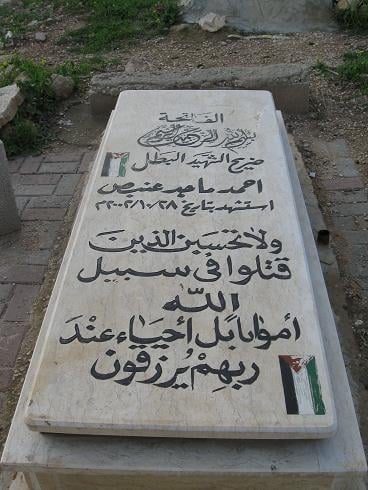 الفاتحة
بسم الله الرحمن الرحيم
ضريح الشهيد البطل
احمد ماجد عنيص
استشهد بتاريخ ٢٠٠٢/١٠/٢٨م
ولا تحسبن الذين
قتلوا في سبيل
الله
أمواتا بل أحياء عند
ربهم يرزقون